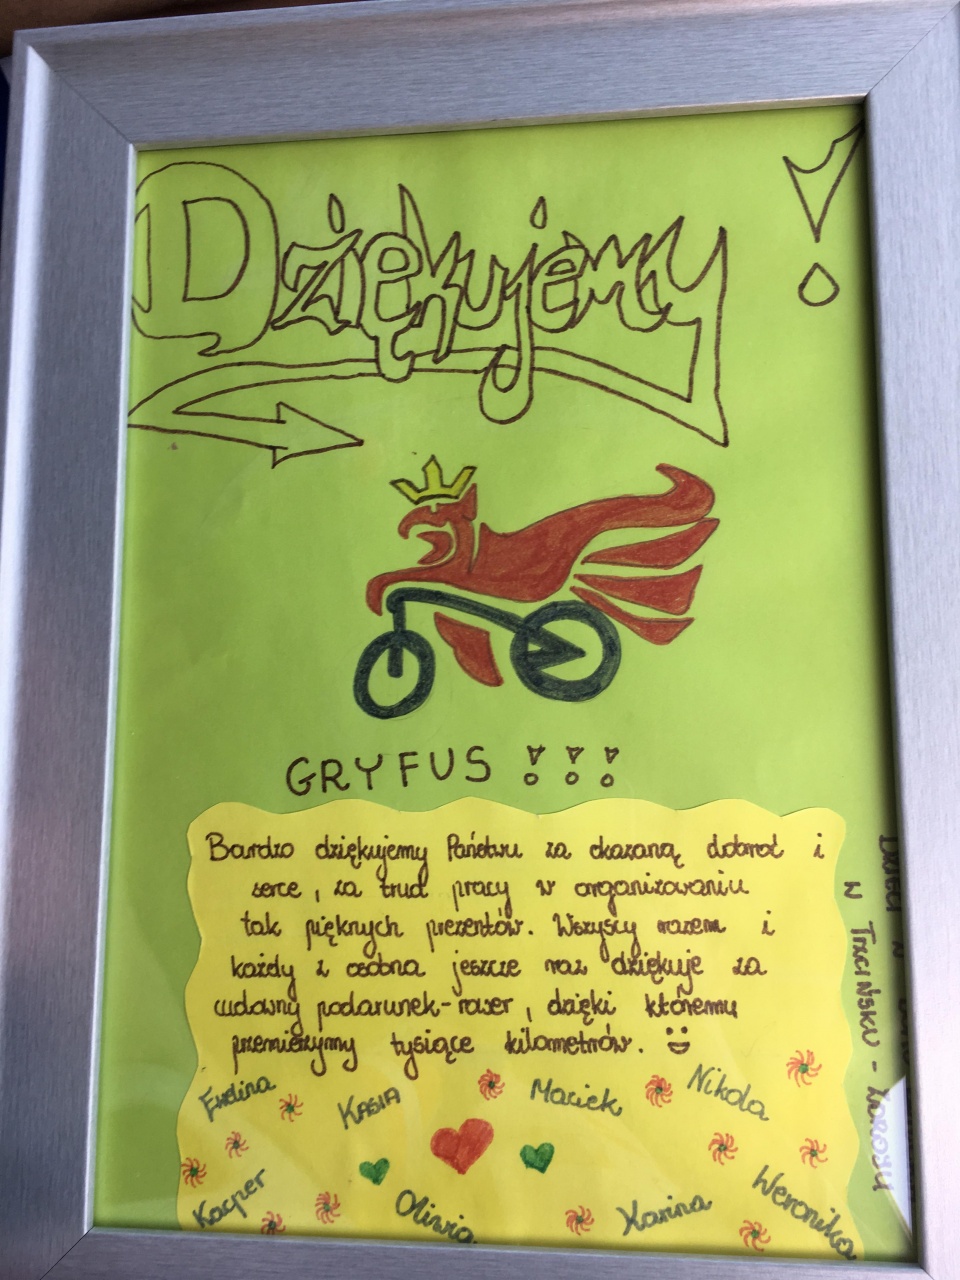 Dziękujemy!
GRYFUS !!!
Bardzo dziękujemy Państwu za okazaną dobroć i
serce, za trud pracy w organizowaniu
tak pięknych prezentów. Wszyscy razem i
każdy z osobna jeszcze raz dziękuje za
cudowny podarunek-rower, dzięki któremu
przemierzymy tysiące kilometrów. :)
Ewelina KASIA Maciek Nikola
Kacper Oliwia Karina Weronika
W TRZCIŃSKU -